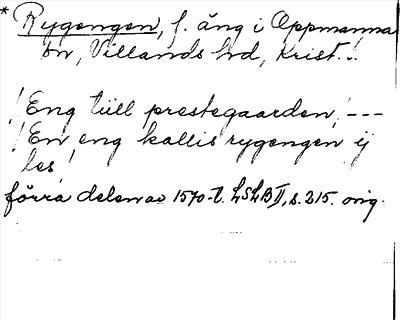 * Rygengen, f. äng i Oppmanna
sn, Villands hd, Krist. l.
! Eng till prestegaarden, ---
! En eng kallis rygengen ij
les!
förra delen av 1570-t. LSLB II, s. 215. orig.